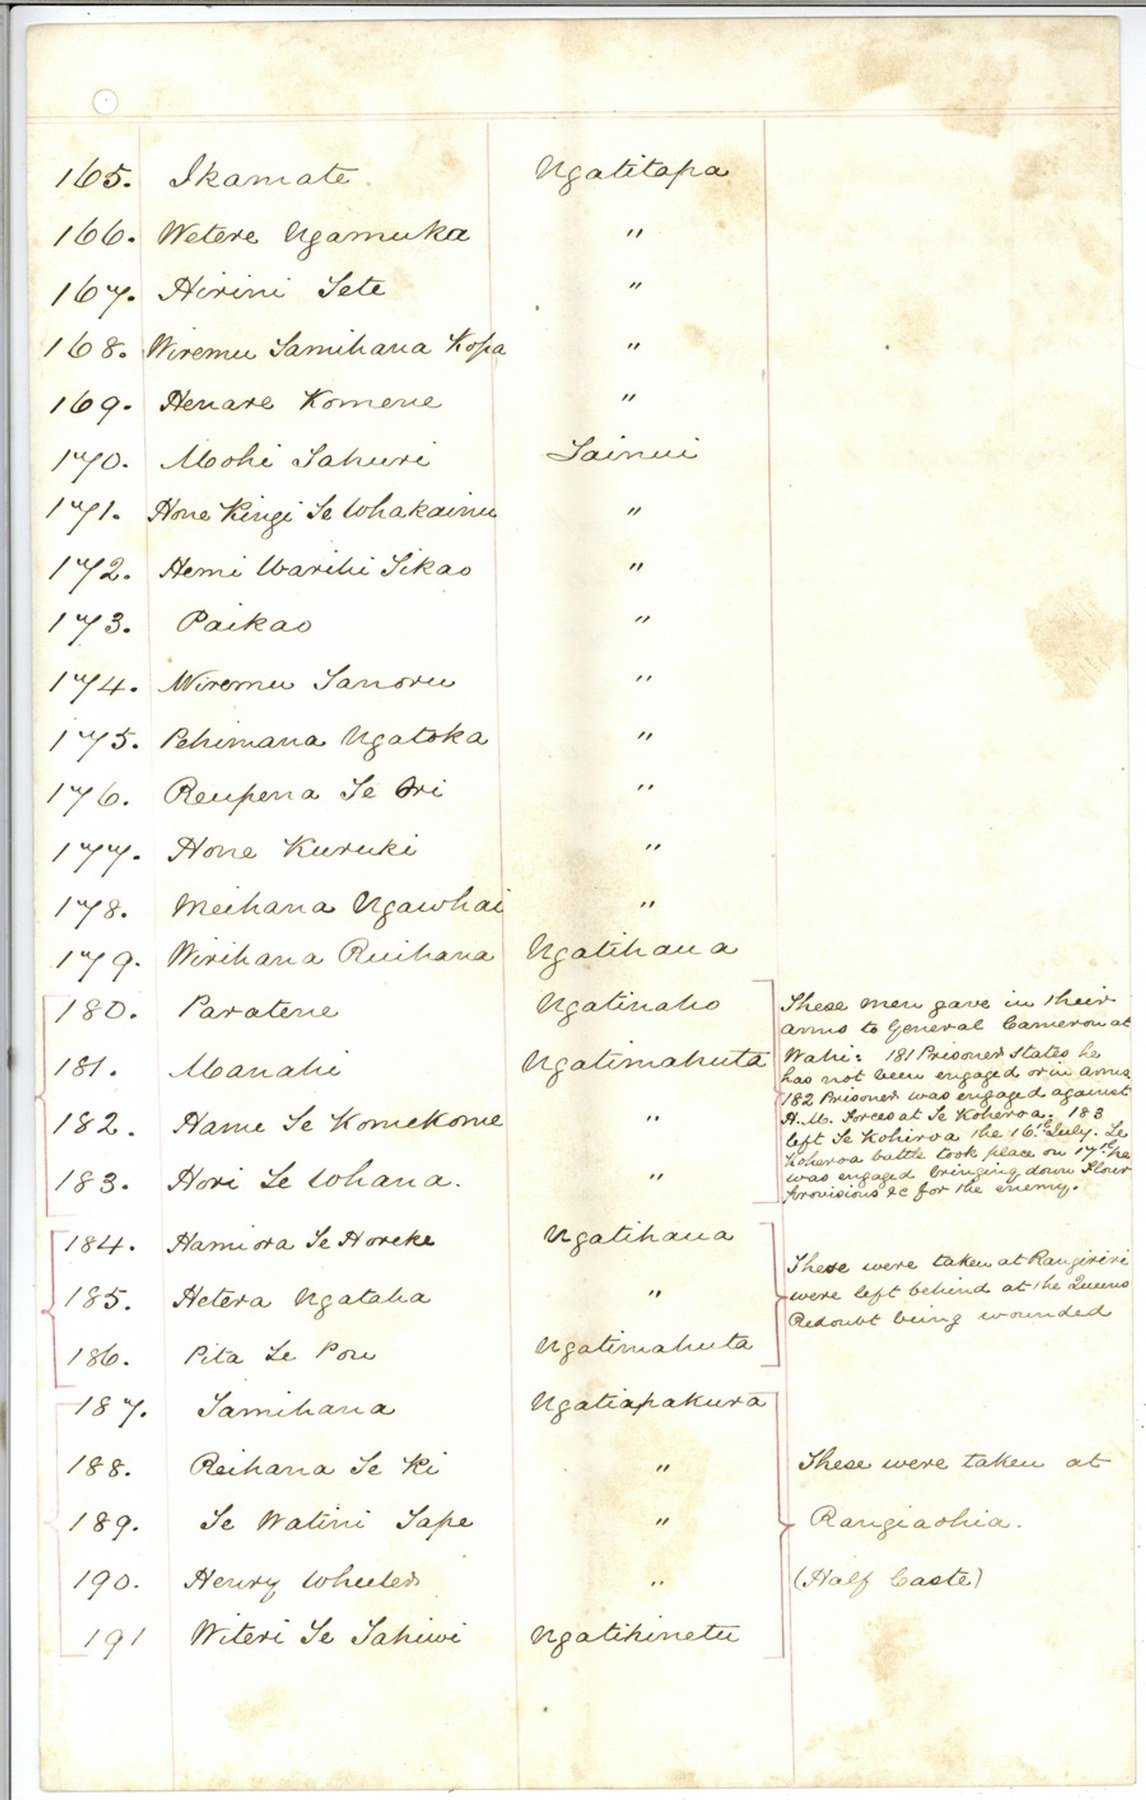 165. Ikamate Ngatitapa
166. Wetere Ngamuka "
167. Hirini Tete "
168. Wiremu Tamihana Kopa "
169. Henare Komene "
170. Mohi Tahuri Tainui
171. Hone Kingi Te Whakainu "
172. Hemi Warihi Tikao "
173. Paikao "
174. Wiremu Tanoru "
175. Pehimana Ngatoka "
176. Reupena Te Ori "
177. Hone Kuruki "
178. Meihana Ngawhai "
179. Wirihana Ruihana Ngatihaua
180. Paratene Ngatinaho
181. Manahi Ngatimahuta
182. Hame Te Komekome "
183. Hori Te Whana. "
These men gave in their
arms to General Cameron at
Wahi: 181 Prisoner states he
has not been engaged or in arms
182 Prisoner was engaged against
H.M. Forces at Te Koheroa. 183
left Te Kohiroa the 16.th July. Te
Koheroa battle took place on 17.th he
was engaged bringing down Flour
provisions &c for the enemy.
184. Hamiora Te Horeke Ngatihaua
185. Hetera Ngataha "
186. Pita Te Pou Ngatimahuta
These were taken at Rangiriri
were left behind at the Queens
Redoubt being wounded
187. Tamihana Ngatiapakura
188. Reihana Te Ki " These were taken at
189. Te Watini Tape " Rangiaohia.
190. Henry Wheeler " (Half Caste)
191 Witeri Te Tahiwi Ngatihinetu